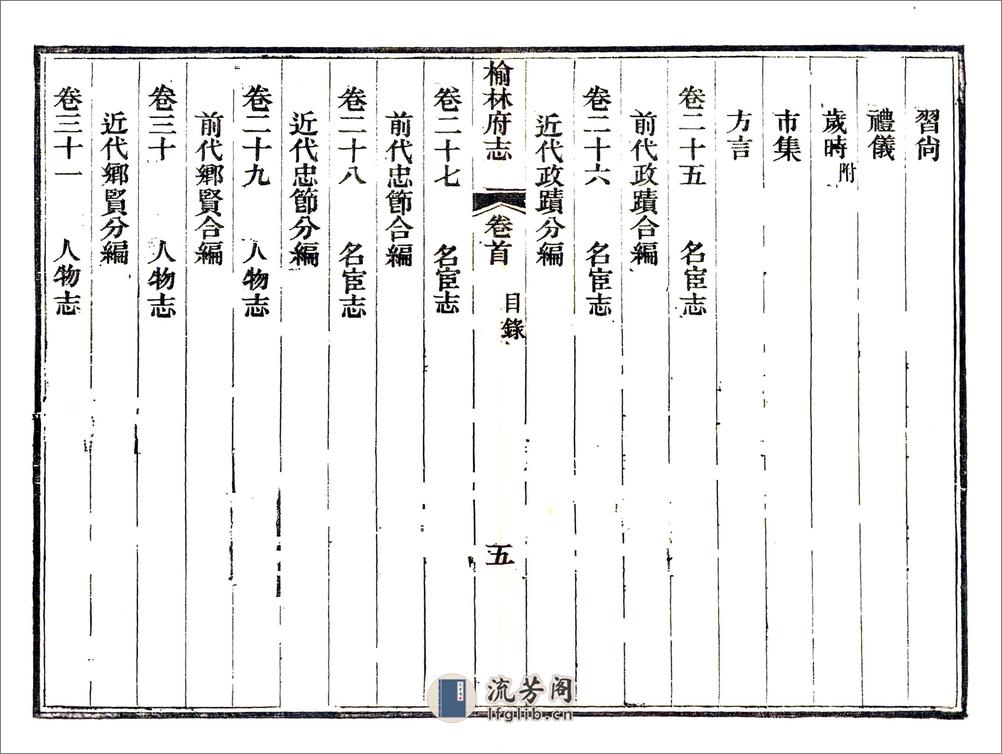 習尙
禮儀
歲時附
市集
方言
卷二十五 名宦志
前代政蹟合編
卷二十六 名宦志
近代政蹟分編
榆林府志 卷首 目錄 五
卷二十七 名宦志
前代忠節合編
卷二十八 名宦志
近代忠節分編
卷二十九 人物志
前代鄉賢合編
卷三十 人物志
近代鄉賢分編
卷三十一 人物志
流芳阁
lfglib.cn